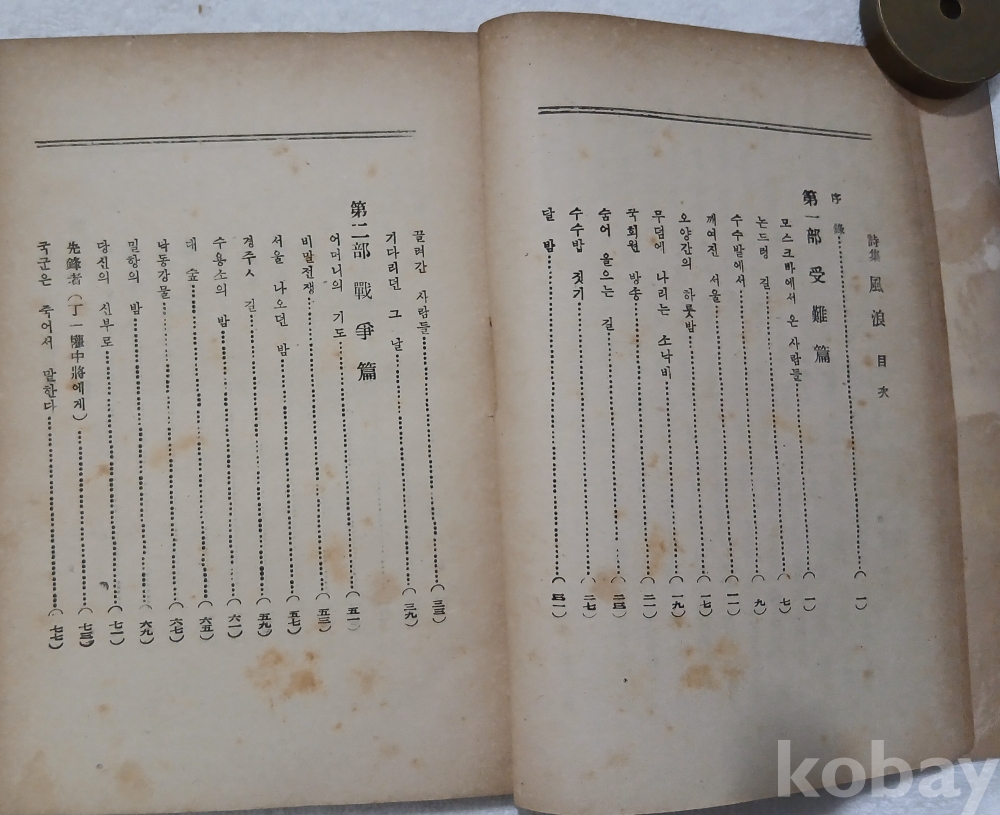 詩集 風浪 目次
序
第一部 受難篇
모스크바에서 온 사람들 (七)
논드렁 길 (九)
수수밭에서 (一一)
깨여진 서울 (一七)
오양간의 하룻밤 (一九)
무덤에 나리는 소낙비
국회원 방송 (二一)
숨어 울으는 길
수수밥 짓기 (二七)
달 밤
끌려간 사람들
기다리던 그 날
第二部 戰爭篇
어머니의 기도 (五一)
비밀전쟁 (五三)
서울 나오던 밤 (五七)
경주ㅅ 길 (五九)
수용소의 밤 (六一)
대 숲 (六五)
낙동강물 (六七)
밀항의 밤 (六九)
당신의 신부로 (七一)
先鋒者 (丁一權中將에게) (七三)
국군은 죽어서 말한다 (七七)
kobay